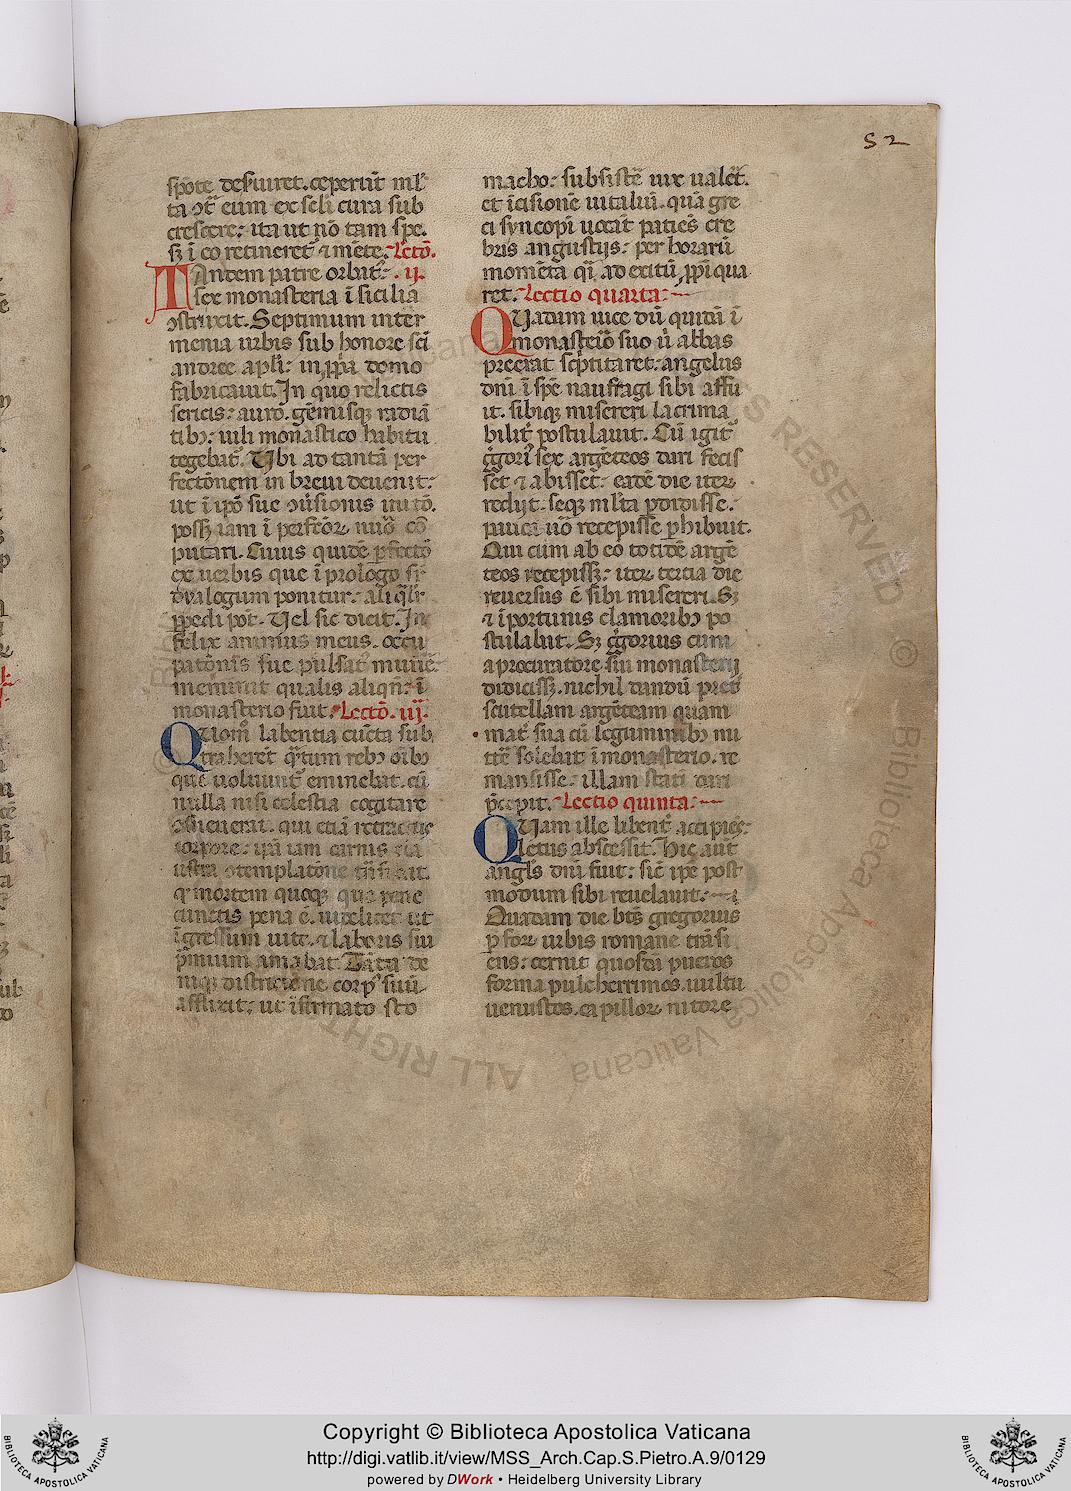 52
spōte deſuiret. ceperūt ml̄
ta ↄt̄ eum ex ſcli cura ſub
creſcere: ita ut nō tam ſpē.
ſꝫ ī eo retineret̄ ⁊ mēte. Lectō.
TAndem patre orbat᷒: .ij.
ſex monaſteria ī ſicilia
ↄſtruxit. Septimum inter
menia urbis ſub honore ſcī
andree apl̄i: in ꝓp̄a domo
fabricauit. In quo relictis
ſericis: auro. gēmiſqꝫ radiā
tibꝫ: uili monaſtico habitu
tegebat᷒. Ubi ad tantā per
fectōnem in breui deuenit:
ut ī ip̄o ſue ↄūſionis initō.
poſſꝫ iam ī perfectoꝝ nūo cō
putari. Cuius quidē ꝑfectō
ex uerbis que ī prologo ſr̄
dyalogum ponitur: aliq̄lr̄
ꝑpēdi pōt. Vel ſic dicit. In
felix animus meus. occu
patōnis ſue pulſat᷒ munē
meminit qualis aliqn̄: ī
monaſterio fuit. Lectō. iij.
QUom̄ labentia cūcta ſub
traherēt q̄tum rebꝫ oībꝫ
que uoluunt᷒ eminebat. cū
nulla niſi celeſtia cogitare
ↄſueuerat. qui etiā retractus
corpore: ip̄a iam carnis clā
uſtra ↄtemplatōne trāſibat.
q᷒ mortem quoqꝫ que pene
cunctis pena ē. uidelicet ut
īgreſſum uite. ⁊ laboris ſui
p̄mium amabat. Tāta de
niqꝫ diſtrictione corp᷒ ſuū
afflixit: ut īfirmato ſto
macho: ſubſiſtē uix ualet̄.
et īciſionē uitaliū. quā gre
ci ſyncopī uocāt patiēs cre
bris anguſtijs: per horarū
momēta qī ad exitū ꝓpī qua
ret. Lectio quarta:
QUadam uice dū quidā ī
monaſterio ſuo ū abbas
preerat ſcp̄titaret: angelus
dnī ī ſpē naufragi ſibi affu
it. ſibiqꝫ miſereri lacrima
bilit᷒ poſtulauit. Cū igit᷒
ḡgori᷒ ſex argēteos dari feciſ
ſet ⁊ abiſſet: eadē die iteꝝ
redijt. ſeqꝫ ml̄ta ꝑdidiſſe.
pauca ūo recepiſſe ꝑhibuit.
Qui cum ab eo totidē argē
teos recepiſſꝫ: iteꝝ tertia die
reuerſus ē ſibi miſereri. Sꝫ
⁊ īportunis clamoribꝫ po
ſtulabat. Sꝫ ḡgorius cum
a procuratore ſui monaſterij
didiciſſꝫ. nichil dandū pret᷒
ſcutellam argēteam quam
mat᷒ ſua cū leguminibꝫ mi
ttē ſolebat ī monaſterio. re
manſiſſe: illam ſtati dari
p̄cepit. Lectio quinta:
QUam ille libent᷒ accipiēs:
letus abſceſſit. Hic aut̄
angl̄s dnī fuit: ſic̄ ipē poſt
modum ſibi reuelauit:
Quadam die bt̄s gregorius
ꝑ foꝝ urbis romane trāſi
ens: cernit quoſdā pueros
forma pulcherrimos. uultu
uenuſtos. capilloꝝ nitore
Copyright © Biblioteca Apostolica Vaticana
http://digi.vatlib.it/view/MSS_Arch.Cap.S.Pietro.A.9/0129
powered by DWork • Heidelberg University Library
BIBLIOTECA APOSTOLICA VATICANA
BIBLIOTECA APOSTOLICA VATICANA